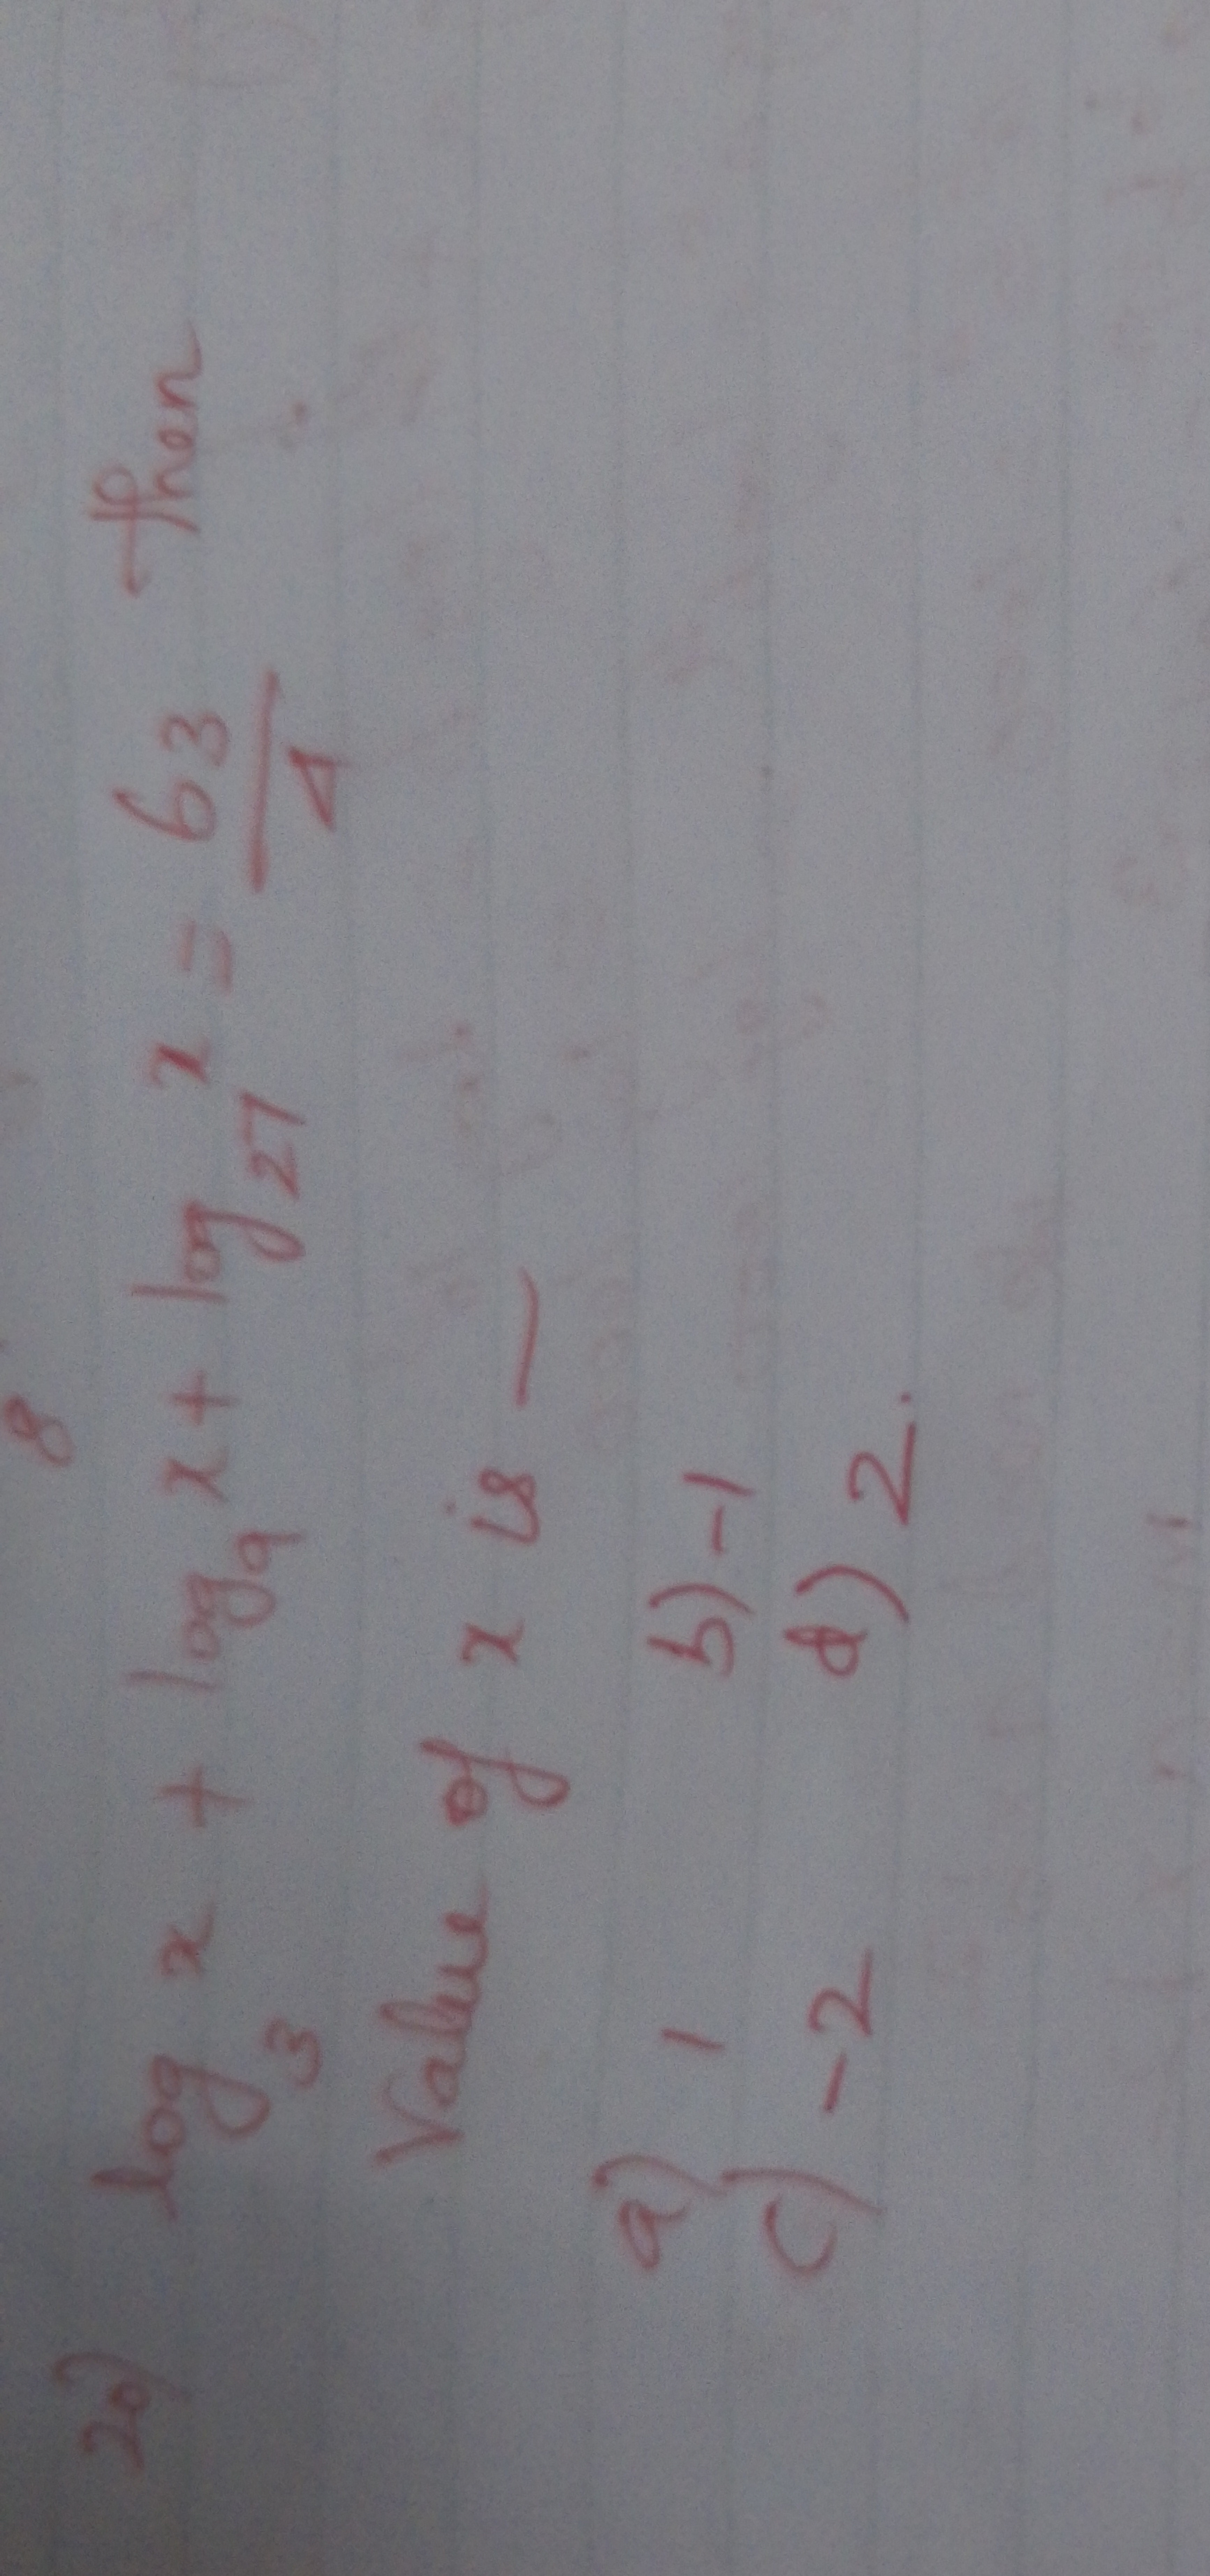 8
20) log₃ x + log₉ x + log₂₇ x = 63/4 then
Value of x is —
a) 1 b) -1
c) -2 d) 2.